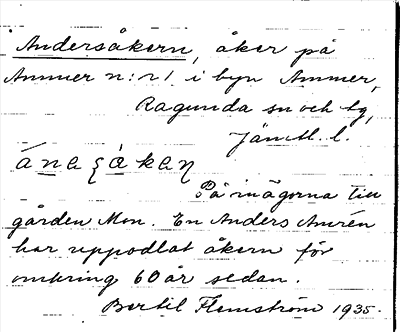 Andersåkern, åker på
Ammer n:r 1 i byn Ammer,
Ragunda sn och tg,
Jämtl. l.
ánaʂàkaɳ
På inägorna till
gården Mon. En Anders Amrén
har uppodlat åkern för
omkring 60 år sedan.
Bertil Flemström 1935.